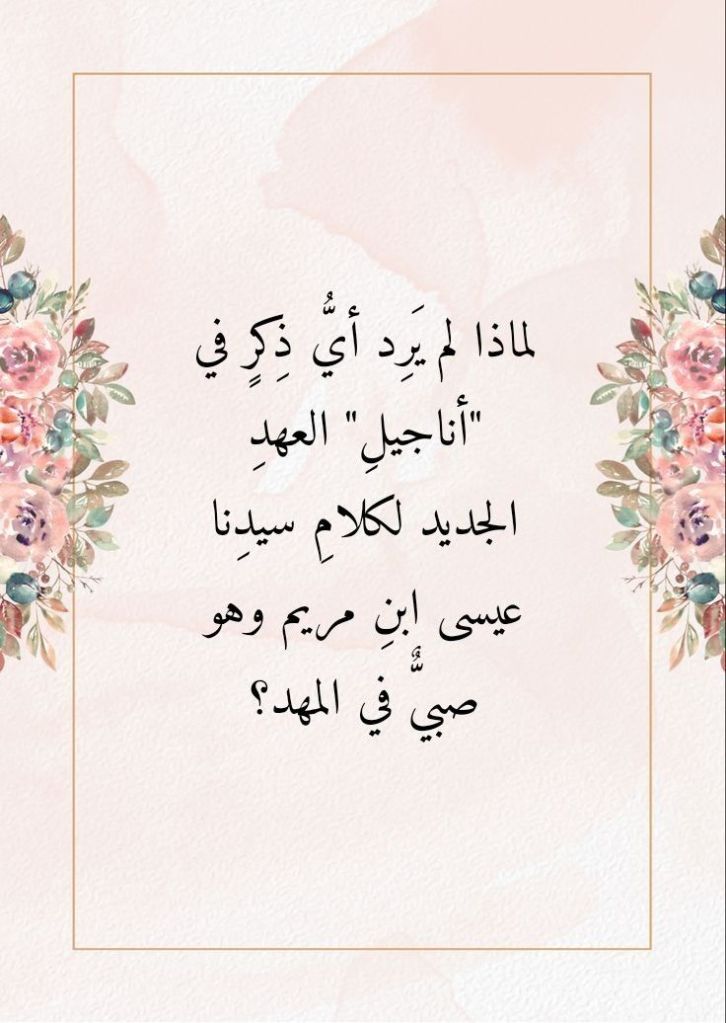 لماذا لم يَرِد أيُّ ذِكرٍ في
"أناجيلِ" العهدِ
الجديد لكلامِ سيدِنا
عيسى ابنِ مريم وهو
صبيٌّ في المهد؟